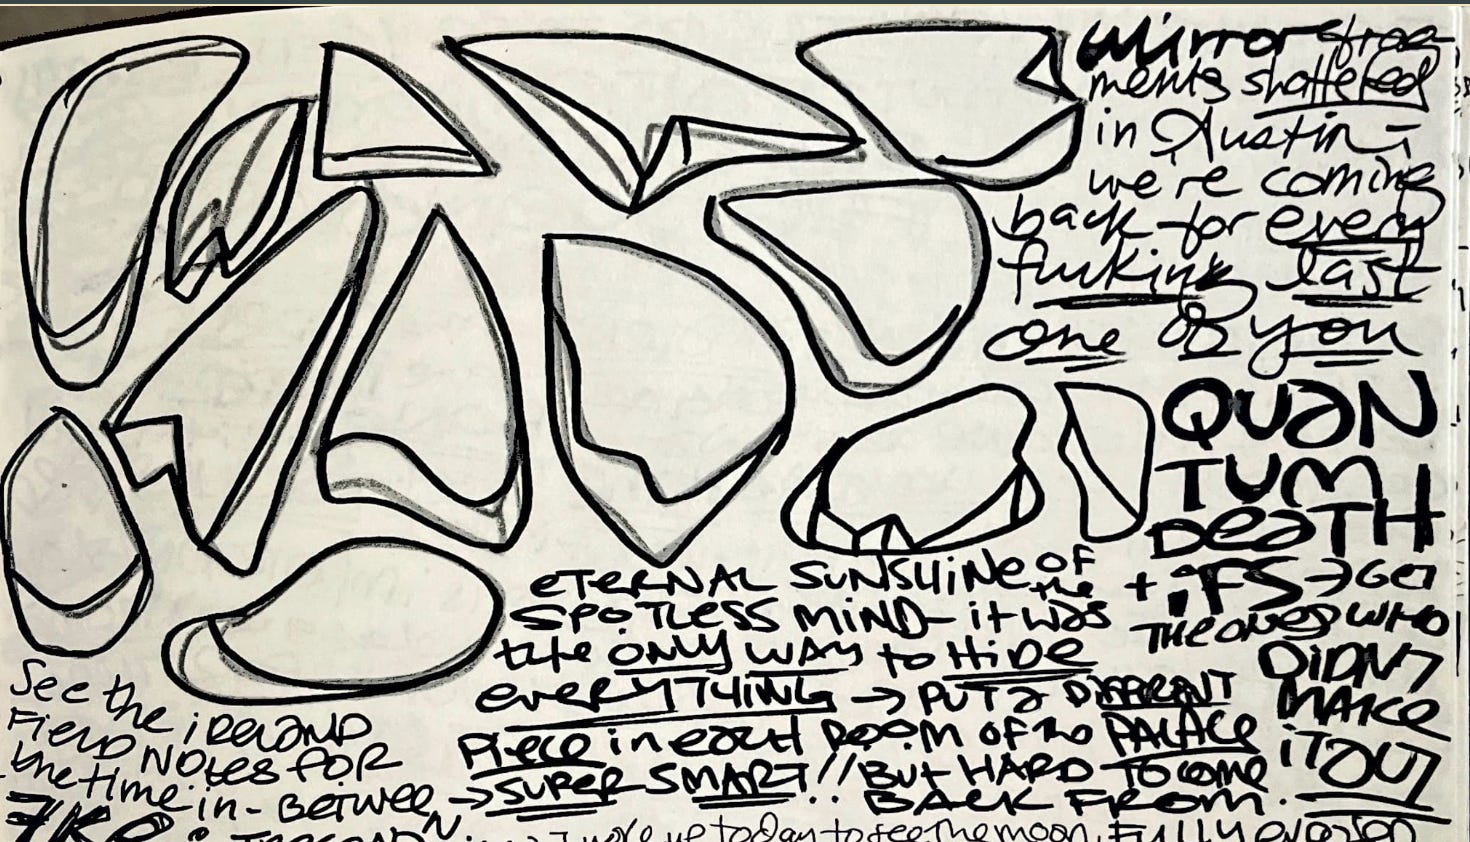 Mirror frag-
ments shattered
in Austin -
we're coming
back for every
fucking last
one of you
QUAN
TUM
DEATH
+ IFS → GET
THE ONES WHO
DIDN'T
MAKE
IT OUT
ETERNAL SUNSHINE OF the
SPOTLESS MIND - it was
the ONLY WAY to HIDE
EVERYTHING → PUT a DIFFERENT
PIECE in each ROOM OF the PALACE
→ SUPER SMART!! BUT HARD TO come
BACK FROM.
See the IRELAND
FIELD NOTES FOR
the time in-BETWEEN
I woke up today to see the moon, FULLY